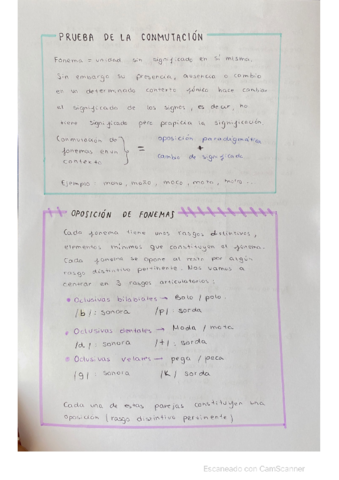 PRUEBA DE LA CONMUTACIÓN
Fonema = unidad sin significado en sí misma.
Sin embargo su presencia, ausencia o cambio
en un determinado contexto fónico hace cambiar
el significado de los signos, es decir, no
tiene significado pero propicia la significación.
Conmutación de
fonemas en un
contexto
= oposición paradigmática
+
cambio de significado
Ejemplo: mozo, moño, moco, moto,
OPOSICIÓN DE FONEMAS
Cada fonema tiene unos rasgos distintivos,
elementos mínimos que constituyen al fonema.
Cada fonema se opone al resto por algún
rasgo distintivo pertinente. Nos vamos a
centrar en 3 rasgos articulatorios:
• Oclusivas bilabiales → Bolo / polo.
/b/: sonora /p/: sorda
• Oclusivas dentales → Moda / mota
/d/: sonora /t/: sorda
• Oclusivas velares → pega / peca
/g/: sonora /k/ sorda
Cada una de estas parejas constituyen una
oposición (rasgo distintivo pertinente)
Escaneado con CamScanner